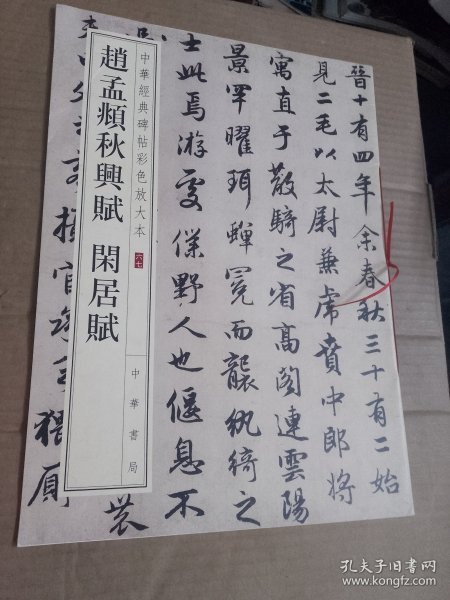 中華經典碑帖彩色放大本 六七
趙孟頫秋興賦 閑居賦
中華書局
晉十有四年余春秋三十有二始
見二毛以太尉兼虎賁中郎將
寓直于散騎之省高閣連雲陽
景罕曜珥蟬冕而襲紈綺之
士此焉游處僕野人也偃息不
攝官承乏猥廁
孔夫子旧书网
www.kongfz.com